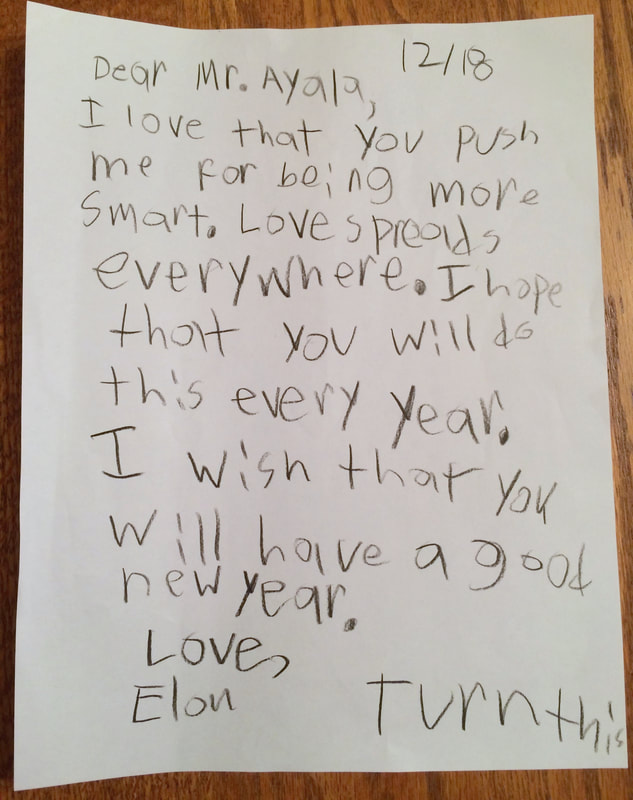 12/18
Dear Mr. Ayala,
I love that you push
me for being more
smart. Love spreads
everywhere. I hope
that you will do
this every year.
I wish that you
will have a good
new year.
Love,
Elon
Turn this